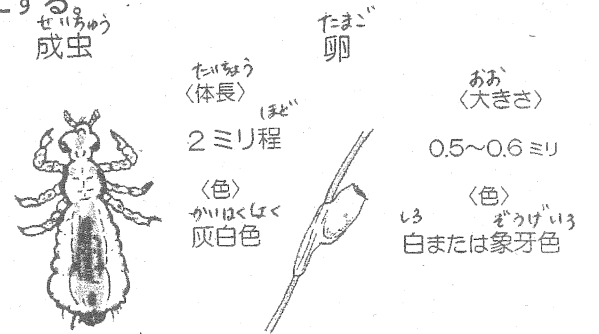 とする。
せいちゅう
成虫
たいちょう
〈体長〉
ほど
2ミリ程
〈色〉
かいはくしょく
灰白色
たまご
卵
おお
〈大きさ〉
0.5～0.6ミリ
〈色〉
しろ ぞうげいろ
白または象牙色